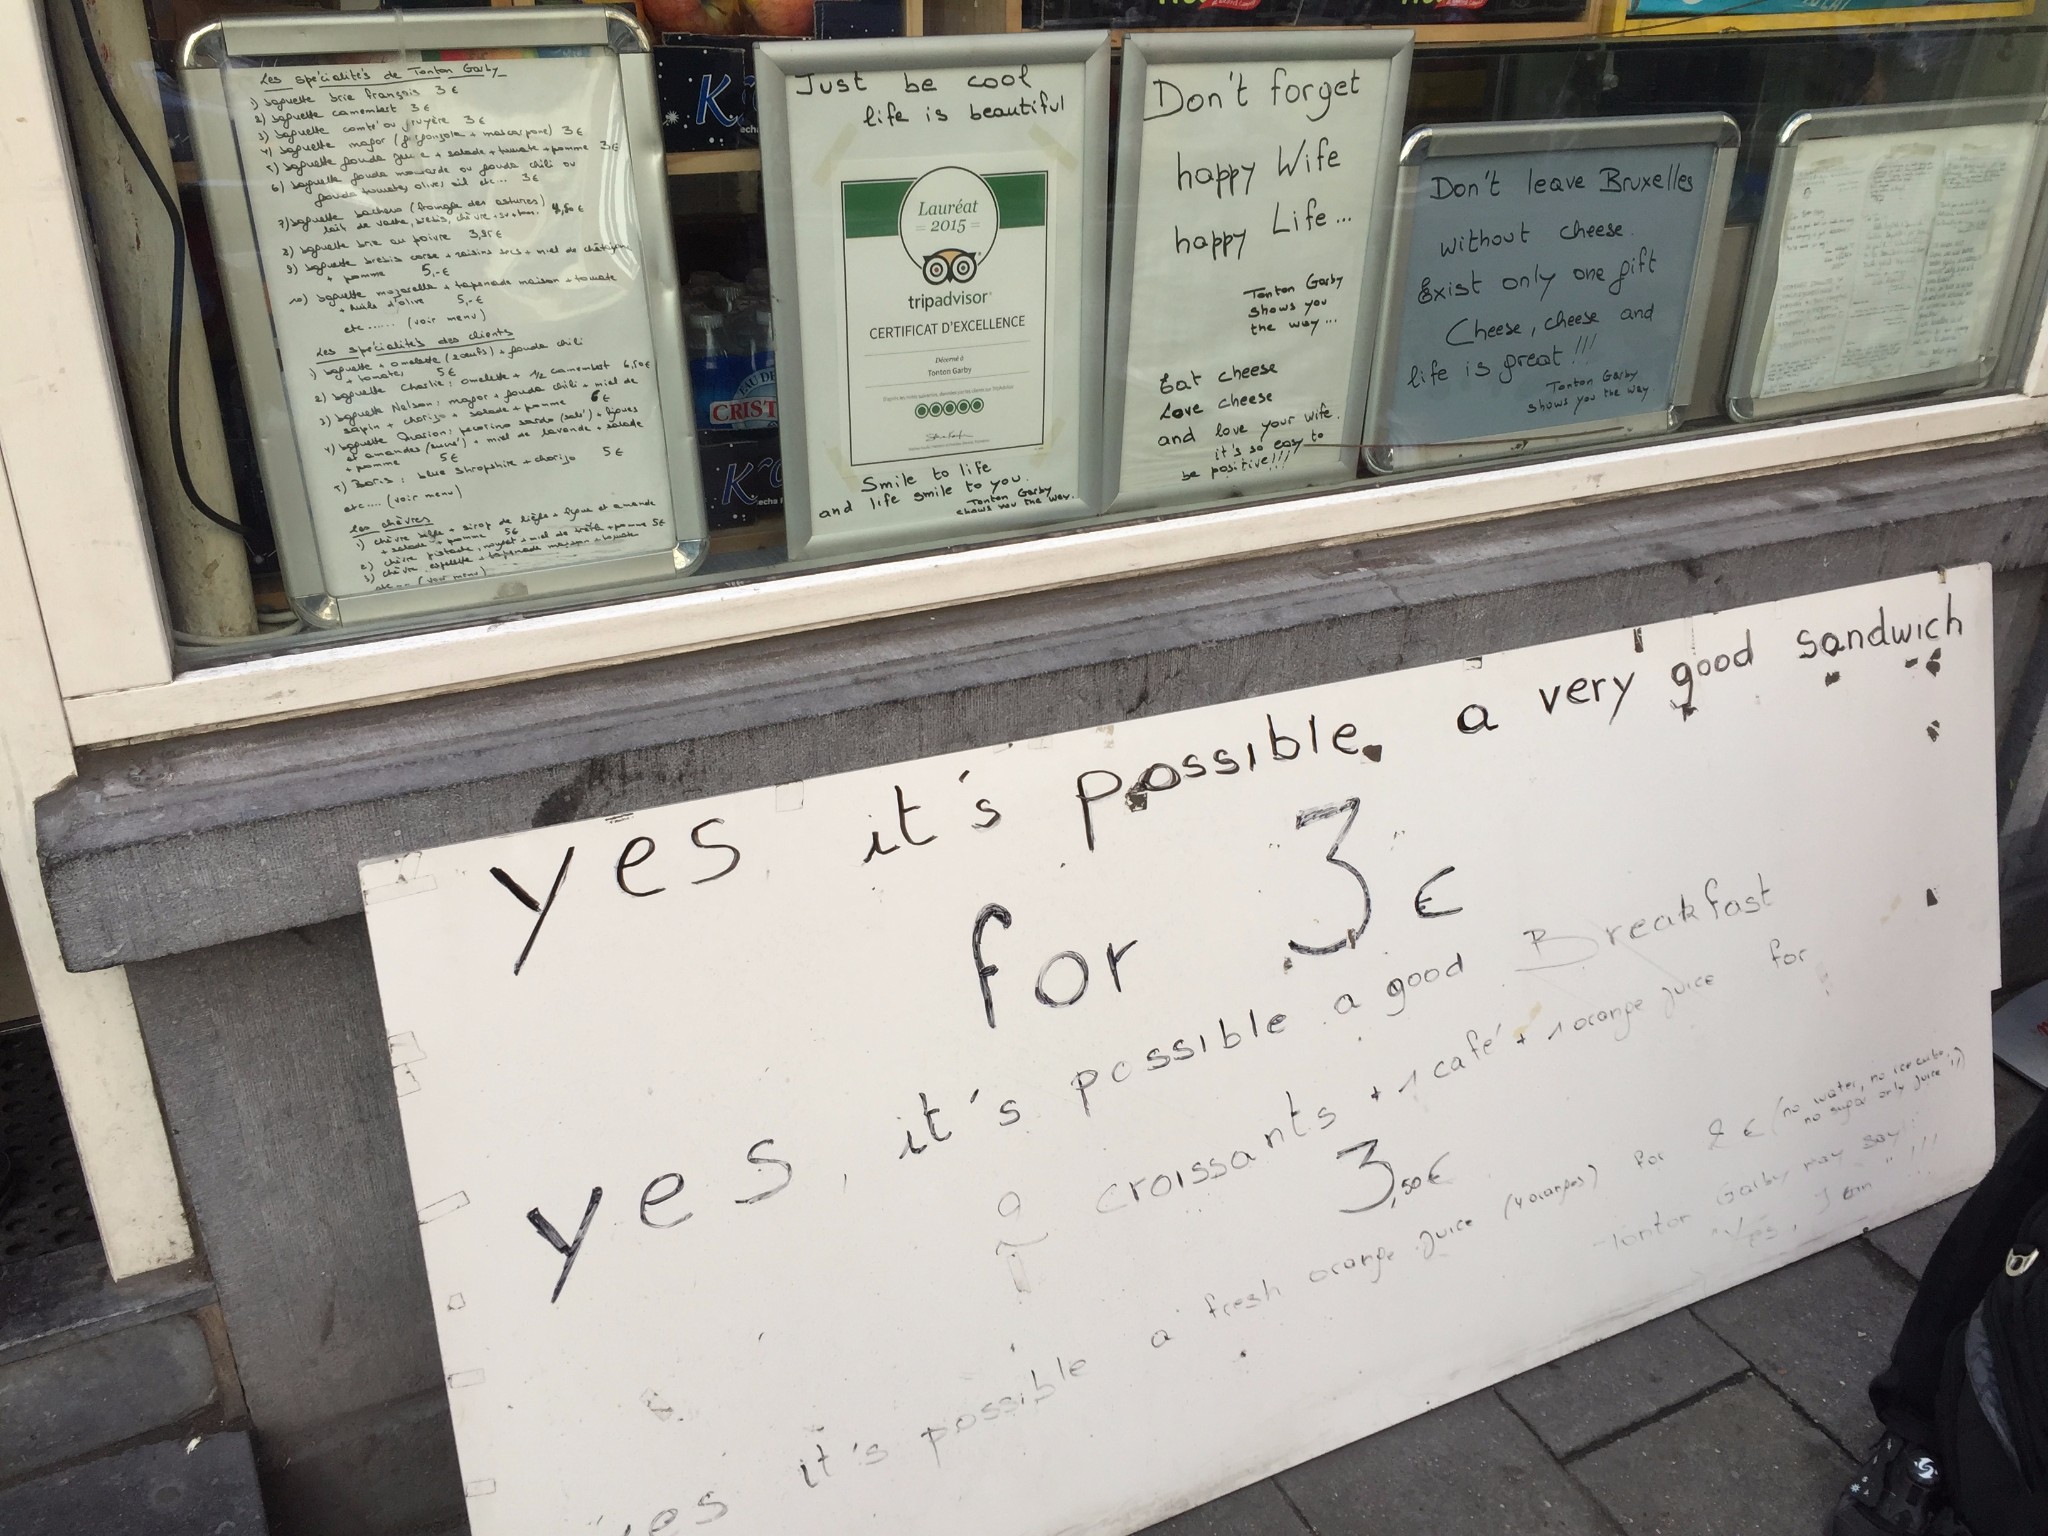 Les spécialités de Tonton Garby
1) baguette brie français 3 €
2) baguette camembert 3 €
3) baguette comté ou gruyère 3 €
4) baguette major (gorgonzola + mascarpone) 3 €
5) baguette gouda + salade + tomate + pomme 3 €
6) baguette gouda moutarde ou gouda chili ou
gouda tomates olives ail etc... 3 €
7) baguette bacheos (fromage des asturies) 4,50 €
lait de vache, brebis, chèvre
8) baguette brie au poivre 3,25 €
9) baguette brebis corse + raisins secs + miel de châtaigne
+ pomme 5,-€
10) baguette mozarella + tapenade maison + tomate
+ huile d'olive 5,-€
etc...... (voir menu)
Les spécialités des clients
1) baguette + omelette (2 oeufs) + gouda chili
+ tomates 5 €
2) baguette Charlie: omelette + 1/2 camembert 6,50 €
3) baguette Nelson: major + gouda chili + miel de
sapin + chorizo + salade + pomme 6 €
4) baguette pecorino sardo (salé) + figues
et amandes (sucré) + miel de lavande + salade
+ pomme 5 €
5) Boris: blue shropshire + chorizo 5 €
etc.... (voir menu)
Les chèvres
1) chèvre + sirop de liège + figue et amande
+ salade + pomme 5€
2) chèvre pistache, + miel de + pomme 5€
3) chèvre espelette + tapenade maison + tomate
etc... (voir menu)
Just be cool
life is beautiful
Lauréat
2015
tripadvisor
CERTIFICAT D'EXCELLENCE
Décerné à
Tonton Garby
Smile to life
and life smile to you.
Tonton Garby
shows you the way.
Don't forget
happy Wife
happy Life...
Tonton Garby
shows you
the way...
Eat cheese
Love cheese
and love your wife.
it's so easy to
be positive!!!
Don't leave Bruxelles
without cheese.
Exist only one gift
Cheese, cheese and
life is great!!!
Tonton Garby
shows you the way
CRIST
yes it's possible a very good sandwich
for 3 €
yes, it's possible a good Breakfast
croissants + 1 café + 1 orange juice for
3,50€
yes it's possible a fresh orange juice (4 oranges) for 2 € (no water, no ice cube,
no sugar only juice !!)
Tonton Garby may say:
"Yes, I can" !!!